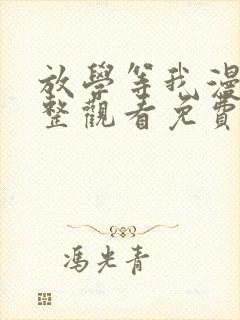 放學等我漫
整觀看免費
馮光青